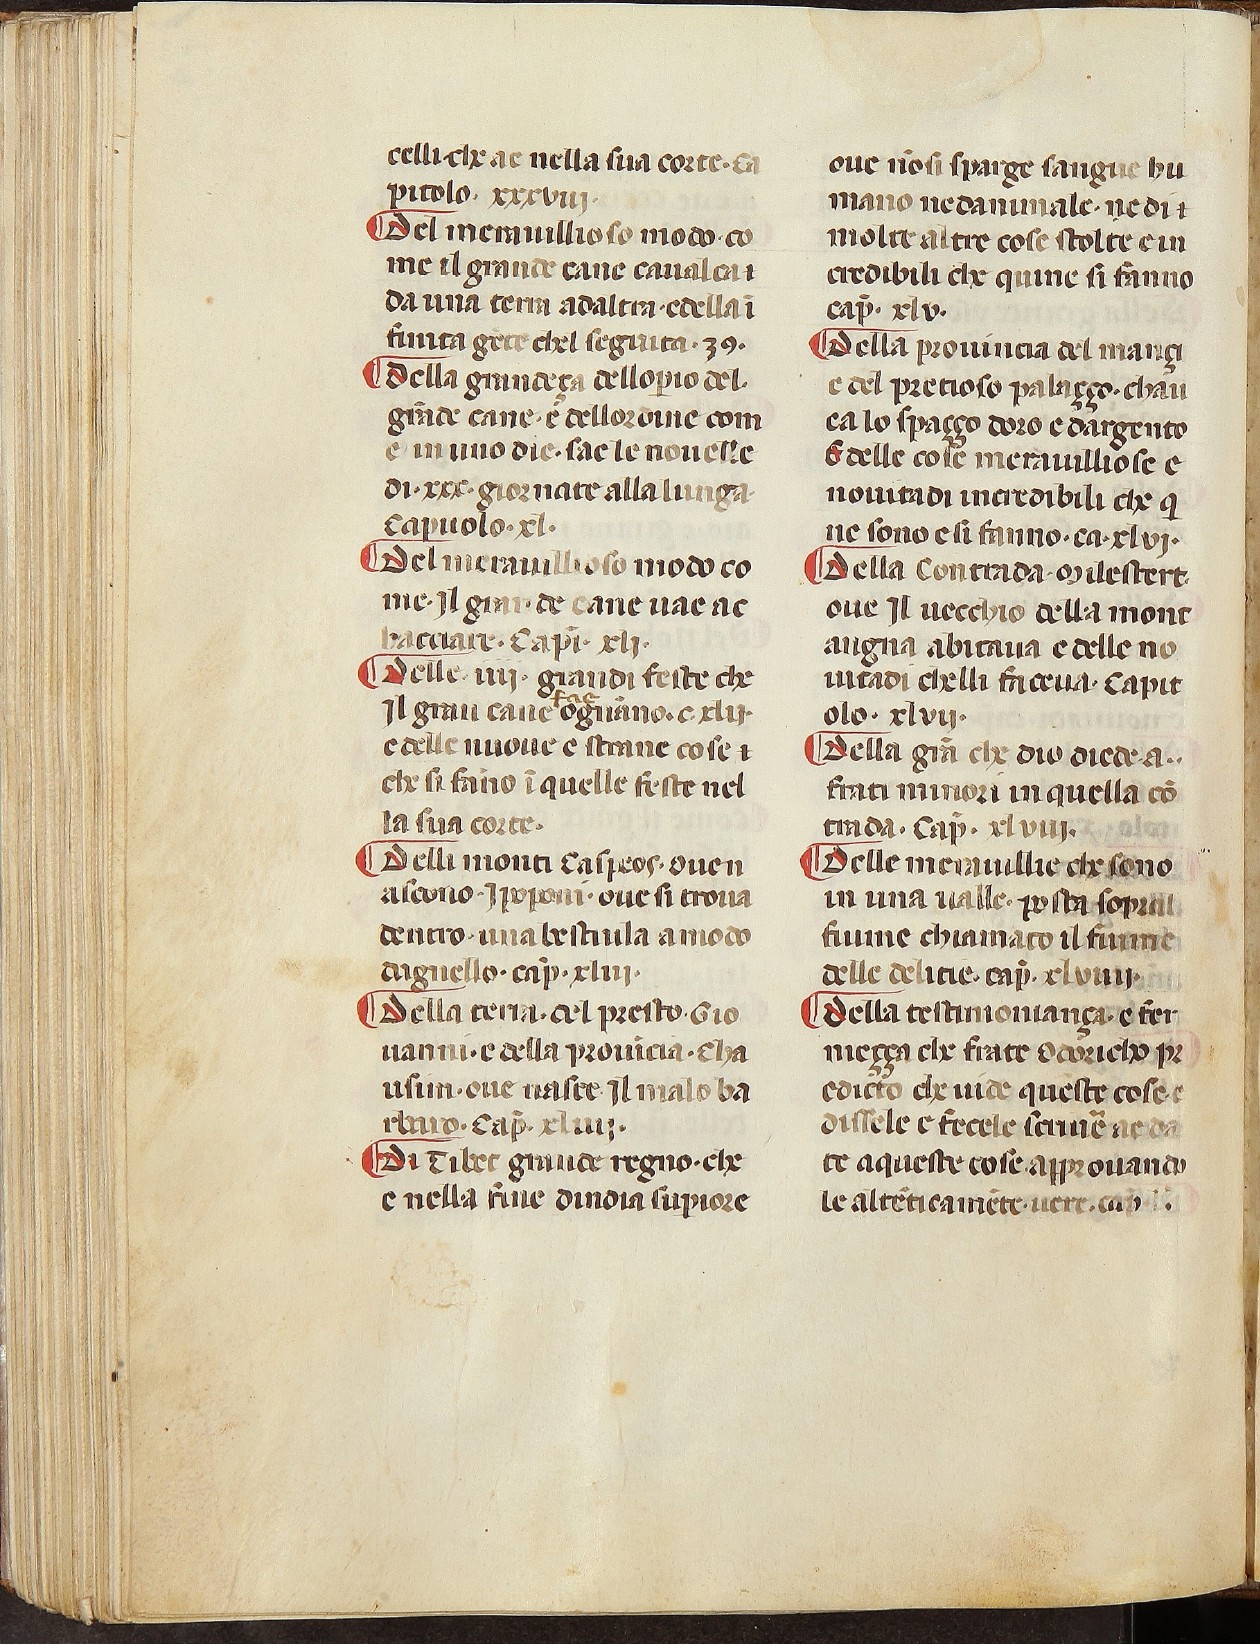 celli·che ae nella sua corte·Ca
pitolo· xxxviij·
Del meravillioso modo·co
me il grande cane cavalca ⁊
da una terra adaltra·edella ĩ
finita gẽte chel seguita·39·
Della grandeça dellop̱io del
grãde cane·e dellordine com
e in uno die·sae le novelle
di·xxx·giornate alla lunga
Capitolo·xl·
Del meravillioso modo co
me·Il gran·de cane vae ae
bacciare·Capi·xlj·
Delle·iiij·grandi feste che
Il gran cane fae ogniãno·c·xlij·
e delle nuove e strane cose ⁊
che si fãno ĩ quelle feste nel
la sua corte·
Delli monti Caspeos·oue n
ascono·I poponi·oue si trova
dentro·una bestiula a modo
dagnello·cap̃·xliij·
Della terra·del presto·Gio
vanni·e della provĩcia·Cha
usim·oue nasce·Il malo ba
rbaro·Cap̃·xliiij·
Di Tibet grande regno·che
e nella fine dindia sup̱iore
oue nõ si sparge sangue hu
mano ne danimale·ne di ⁊
molte altre cose stolte e in
credibili che quine si fanno
cap̃·xlv·
Della provincia del mançi
e del pretioso palaçço·chavi
ea lo spaçço doro e dargento
E delle cose meravilliose e
novitadi incredibili che q
ne sono e si fanno·ca·xlvj·
Della Contrada·Milestert
oue Il vecchio della mont
angna abitava e delle no
vitadi chelli faceva·Capit
olo·xlvij·
Della grã che dio diede·a·
frati minori in quella cõ
trada·Cap̃·xlviij·
Delle meravillie che sono
in una valle·posta sopral
fiume chiamato il fiume
delle delitie·cap̃·xlviiij·
Della testimoniança·e fer
meçça che frate Odoricho pr
edicto che vide queste cose·e
dissele e fecele scrivẽ ae da
te a queste cose·approvando
le altẽticamẽte·vere·cap̃·l·